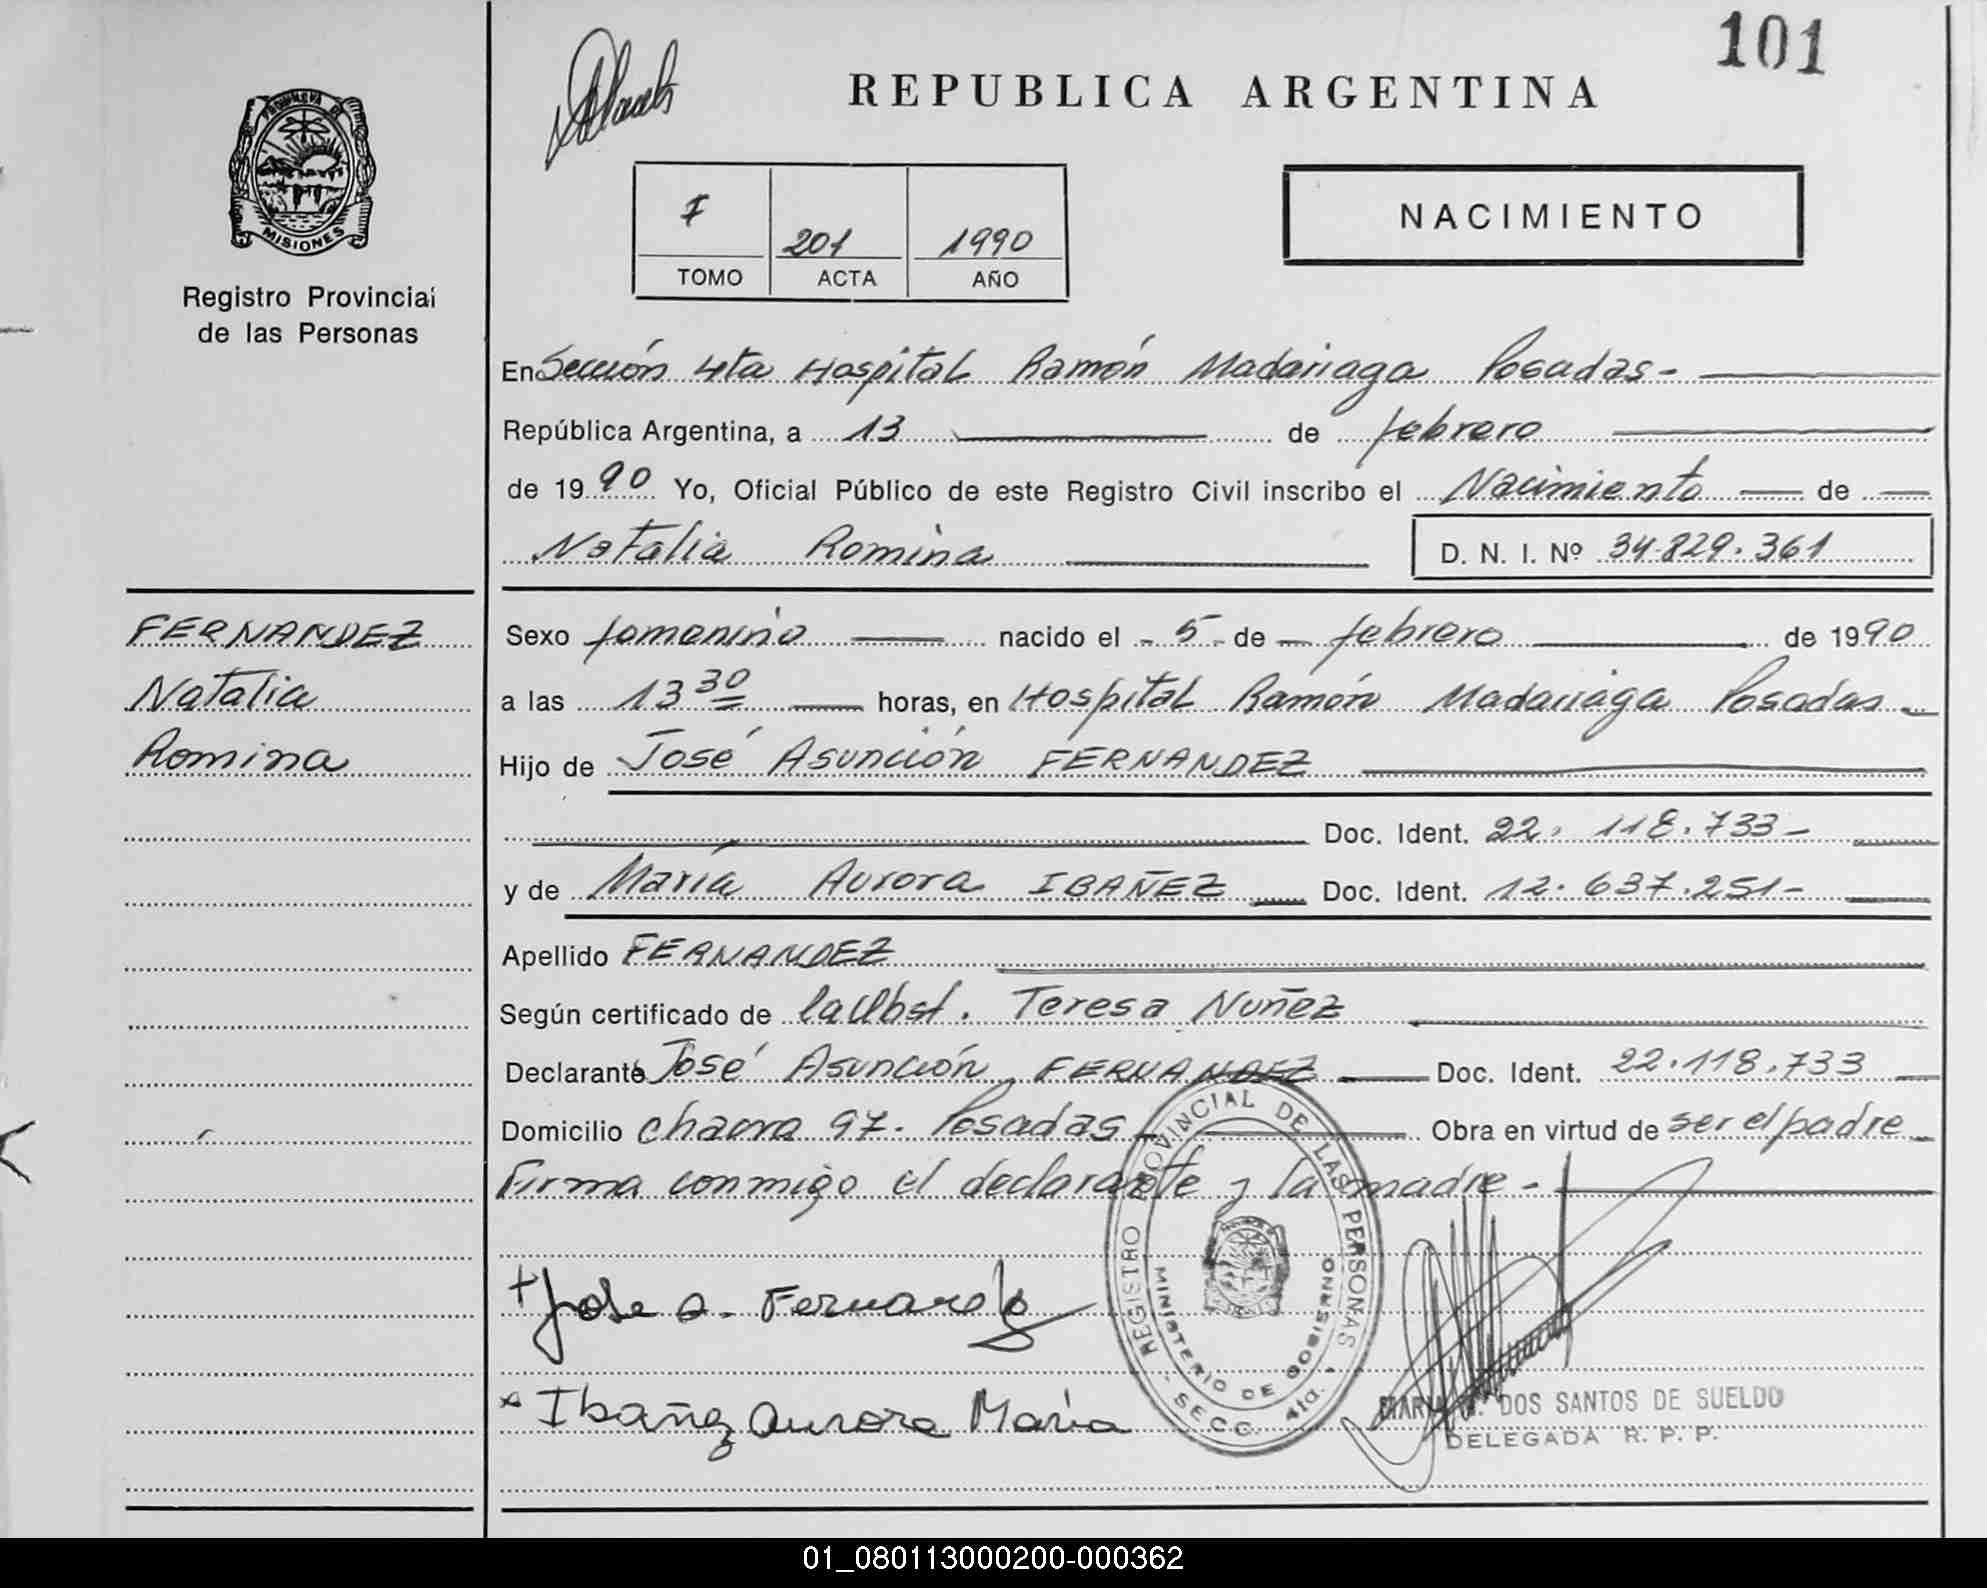 101
REPUBLICA ARGENTINA
PROVINCIA DE
MISIONES
Registro Provincial
de las Personas
7 201 1990
TOMO ACTA AÑO
NACIMIENTO
En Sección 4ta Hospital Ramón Madariaga Posadas-
República Argentina, a 13 de febrero
de 1990 Yo, Oficial Público de este Registro Civil inscribo el Nacimiento de
Natalia Romina D. N. I. Nº 34.829.361
FERNANDEZ
Natalia
Romina
Sexo femenino nacido el - 5 - de febrero de 1990
a las 13 30 horas, en Hospital Ramón Madariaga Posadas
Hijo de José Asunción FERNANDEZ
Doc. Ident. 22.118.733-
y de María Aurora IBAÑEZ Doc. Ident. 12.637.251-
Apellido FERNANDEZ
Según certificado de la Obst. Teresa Nuñez
Declarante José Asunción FERNANDEZ Doc. Ident. 22.118.733
Domicilio chacra 97. Posadas Obra en virtud de ser el padre
Firma conmigo el declarante y la madre-
Jose A. Fernandez
Ibañez Aurora María
REGISTRO PROVINCIAL DE LAS PERSONAS
MINISTERIO DE GOBIERNO
- SECC. 4ta. -
DOS SANTOS DE SUELDO
DELEGADA R. P. P.
01_080113000200-000362